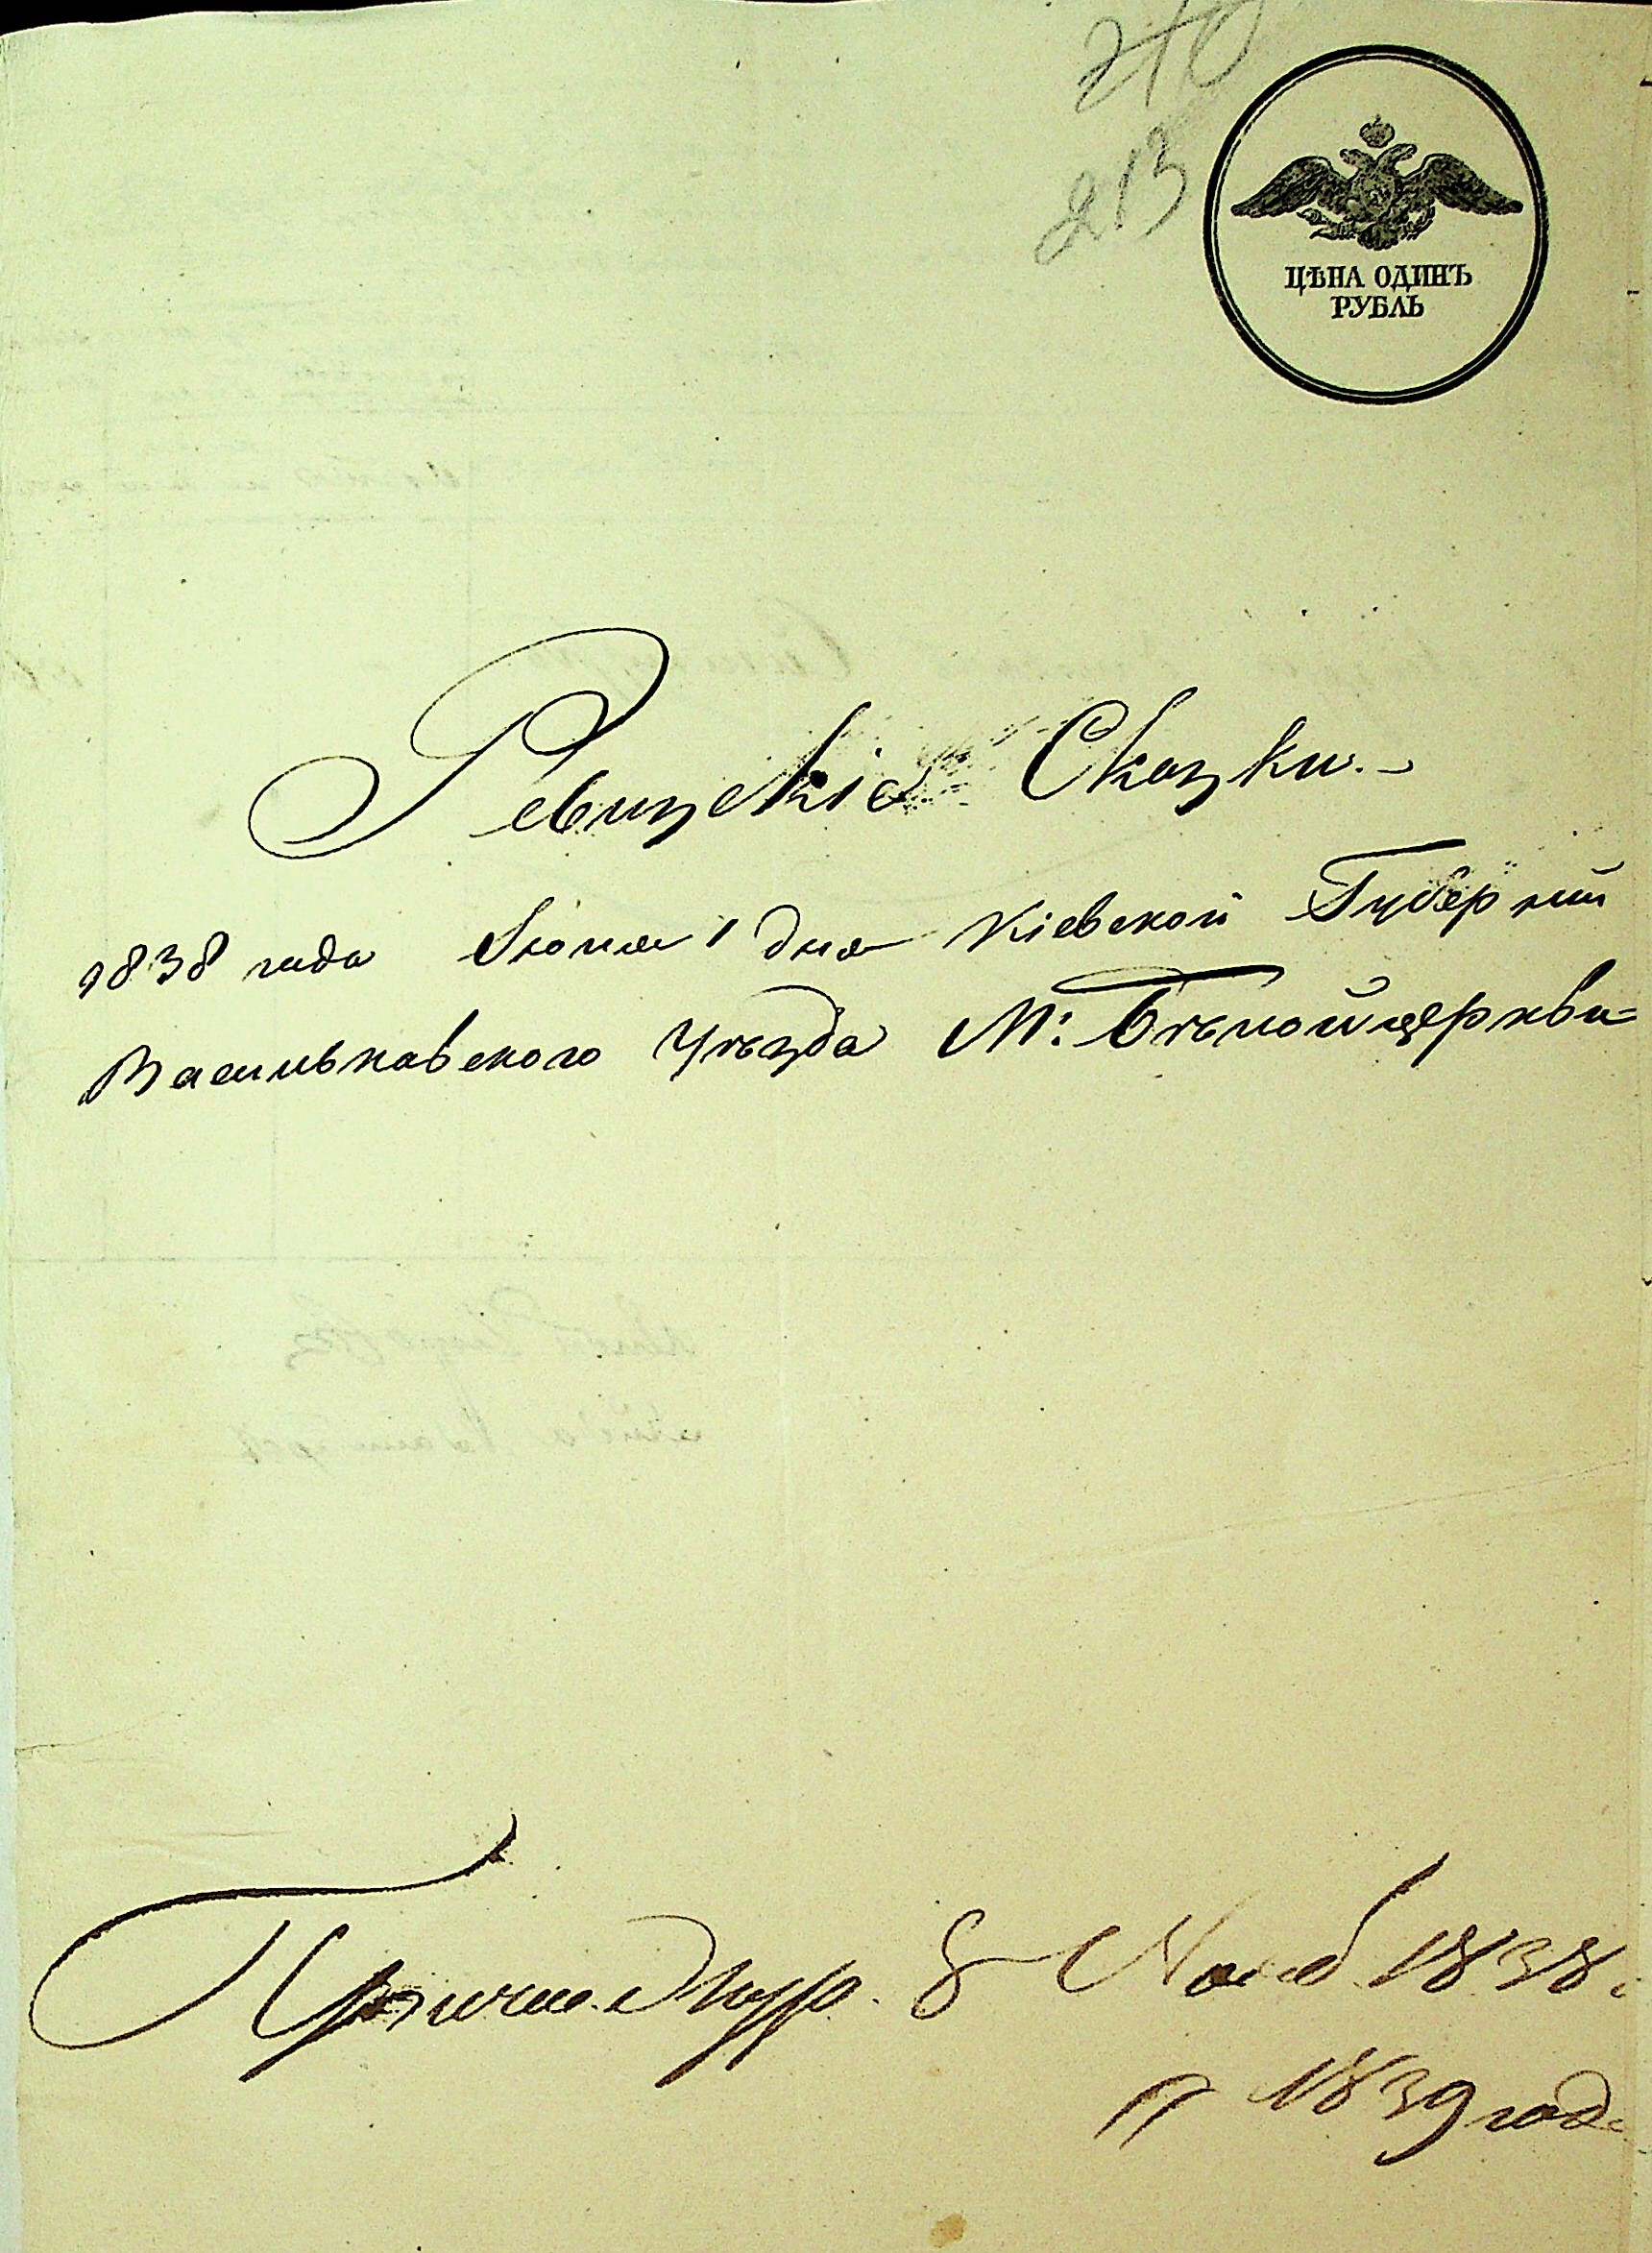 213
ЦѢНА ОДИНЪ
РУБЛЬ
Ревизскіе Сказки.
1838 года Іюня 1 дня Кіевской Губерніи
Васильковского Уѣзда М: Бѣлойцеркви
8 Нояб 1838
1839 года